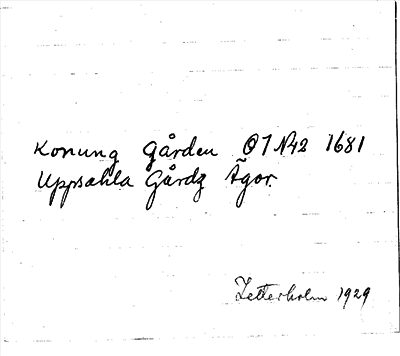 Konung Gården Ö7 N:42 1681
Uppsahla Gårdz Ägor.
Zetterholm 1929